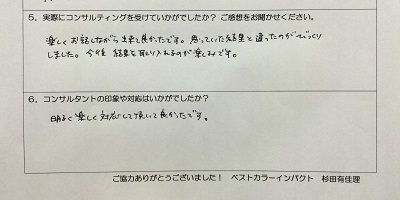 5．実際にコンサルティングを受けていかがでしたか？ ご感想をお聞かせください。
楽しくお話しながら出来て良かったです。思っていた結果と違ったのがびっくり
しました。今後 結果を取り入れるのが楽しみです。
6．コンサルタントの印象や対応はいかがでしたか？
明るく楽しく対応して頂いて良かったです。
ご協力ありがとうございました！ ベストカラーインパクト 杉田有佳理